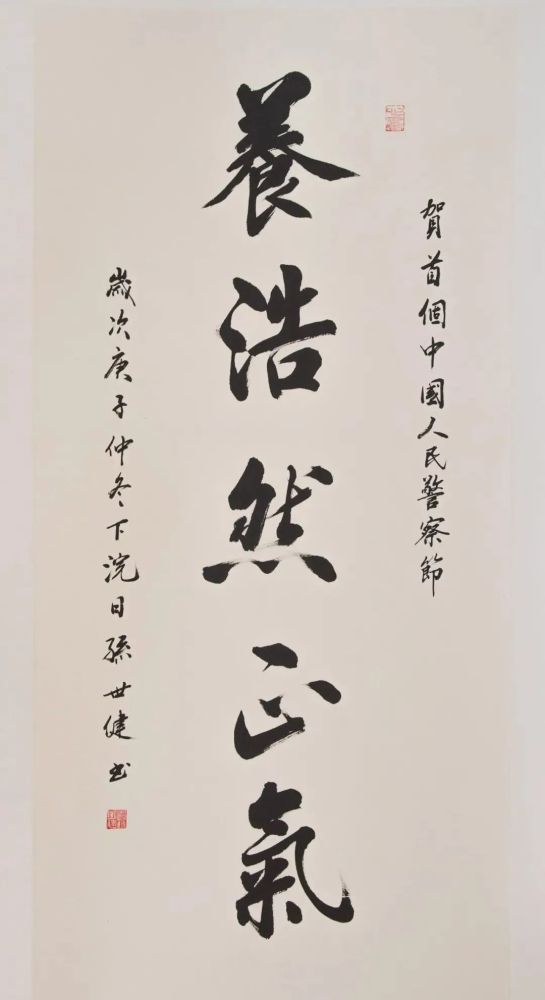 賀首個中國人民警察節
養浩然正氣
歲次庚子仲冬下浣日孫世健書